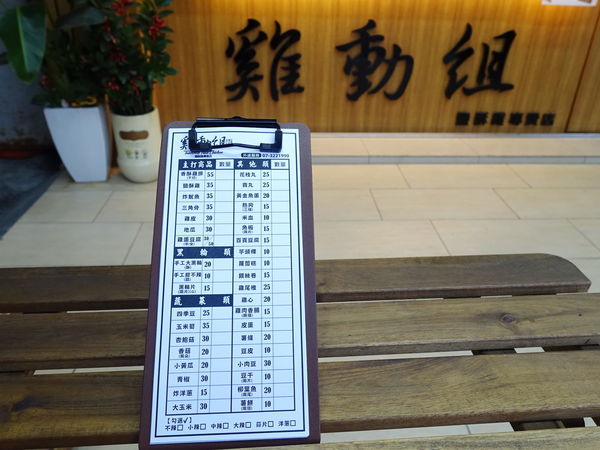 雞動組
鹽酥雞專賣店
雞動組
外送服務 07-3221990
主打商品 數量
香酥雞排 55
鹽酥雞 35
炸魷魚 35
三角骨 35
雞皮 30
地瓜 30
雞蛋豆腐
黑輪類
手工大黑輪 20
手工甜不辣 10
黑輪片 15
蔬菜類
四季豆 25
玉米筍 35
杏鮑菇 30
香菇 20
小黃瓜 20
青椒 30
炸洋蔥 15
大玉米 30
其他類 數量
花枝丸 25
貢丸 25
黃金魚蛋 20
熱狗 15
米血 10
魚板 15
百頁豆腐 15
芋頭粿 10
蘿蔔糕 10
銀絲卷 15
雞尾椎 25
雞心 20
雞肉香腸 15
皮蛋 15
薯條 20
豆皮 10
小肉豆 30
豆干 10
柳葉魚 20
薯餅 10
【勾選✓】
不辣□ 小辣□ 中辣□ 大辣□ 蒜片□ 洋蔥□